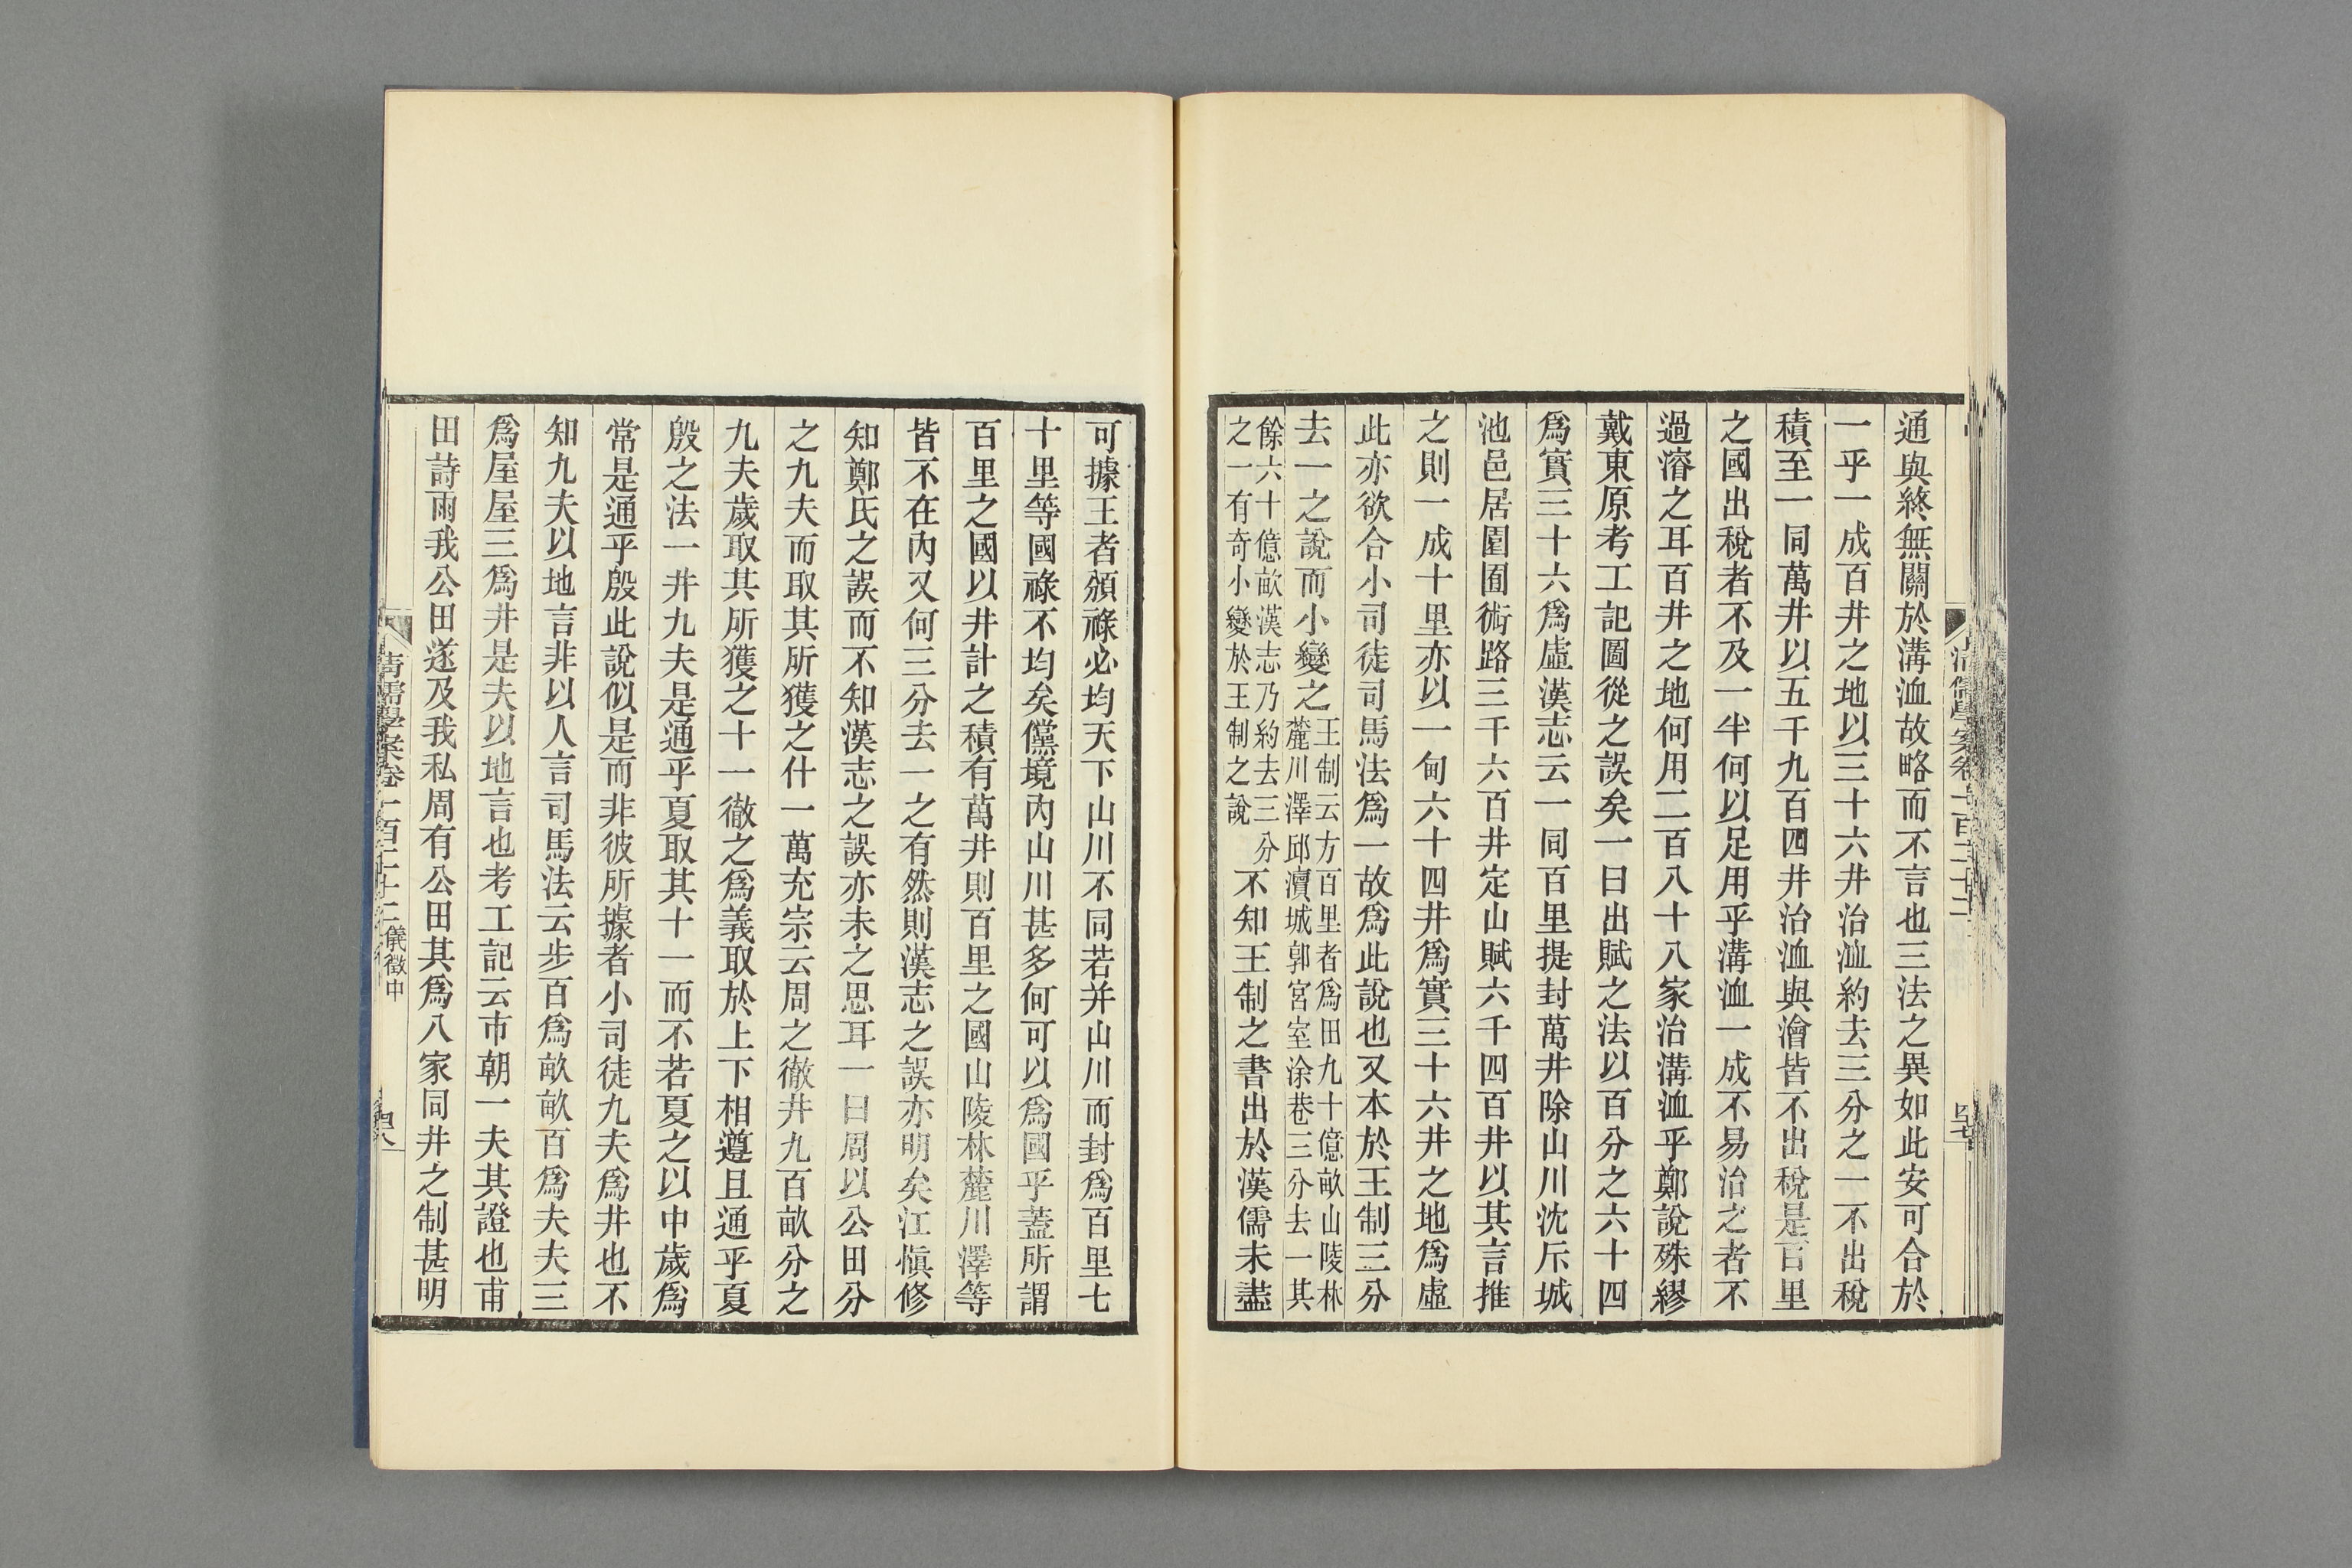 通與終無關於溝洫故略而不言也三法之異如此安可合於
一乎一成百井之地以三十六井治洫約去三分之一不出稅
積至一同萬井以五千九百四井治洫與澮皆不出稅是百里
之國出稅者不及一半何以足用乎溝洫一成不易治之者不
過濬之耳百井之地何用二百八十八家治溝洫乎鄭說殊繆
戴東原考工記圖從之誤矣一曰出賦之法以百分之六十四
爲實三十六爲虛漢志云一同百里提封萬井除山川沈斥城
池邑居園囿術路三千六百井定出賦六千四百井以其言推
之則一成十里亦以一甸六十四井爲實三十六井之地爲虛
此亦欲合小司徒司馬法爲一故爲此說也又本於王制三分
去一之說而小變之
王制云方百里者爲田九十億畝山陵林
麓川澤邱瀆城郭宮室涂巷三分去一其
餘六十億畝漢志乃約去三分
之一有奇小變於王制之說
不知王制之書出於漢儒未盡
可據王者頒祿必均天下山川不同若并山川而封爲百里七
十里等國祿不均矣儻境內山川甚多何可以爲國乎蓋所謂
百里之國以井計之積有萬井則百里之國山陵林麓川澤等
皆不在內又何三分去一之有然則漢志之誤亦明矣江愼修
知鄭氏之誤而不知漢志之誤亦未之思耳一曰周以公田分
之九夫而取其所獲之什一萬充宗云周之徹井九百畝分之
九夫歲取其所獲之十一徹之爲義取於上下相遵且通乎夏
殷之法一井九夫是通乎夏取其十一而不若夏之以中歲爲
常是通乎殷此說似是而非彼所據者小司徒九夫爲井也不
知九夫以地言非以人言司馬法云步百爲畝畝百爲夫夫三
爲屋屋三爲井是夫以地言也考工記云市朝一夫其證也甫
田詩雨我公田遂及我私周有公田其爲八家同井之制甚明
清儒學案卷一百二十二 儀徵中